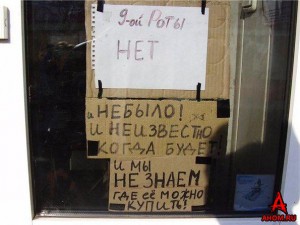 9-ой Роты
НЕТ
и НЕБЫЛО!
И НЕИЗВЕСТНО
КОГДА БУДЕТ!
И МЫ
НЕ ЗНАЕМ
ГДЕ ЕЁ МОЖНО
КУПИТЬ!
AHOM.RU